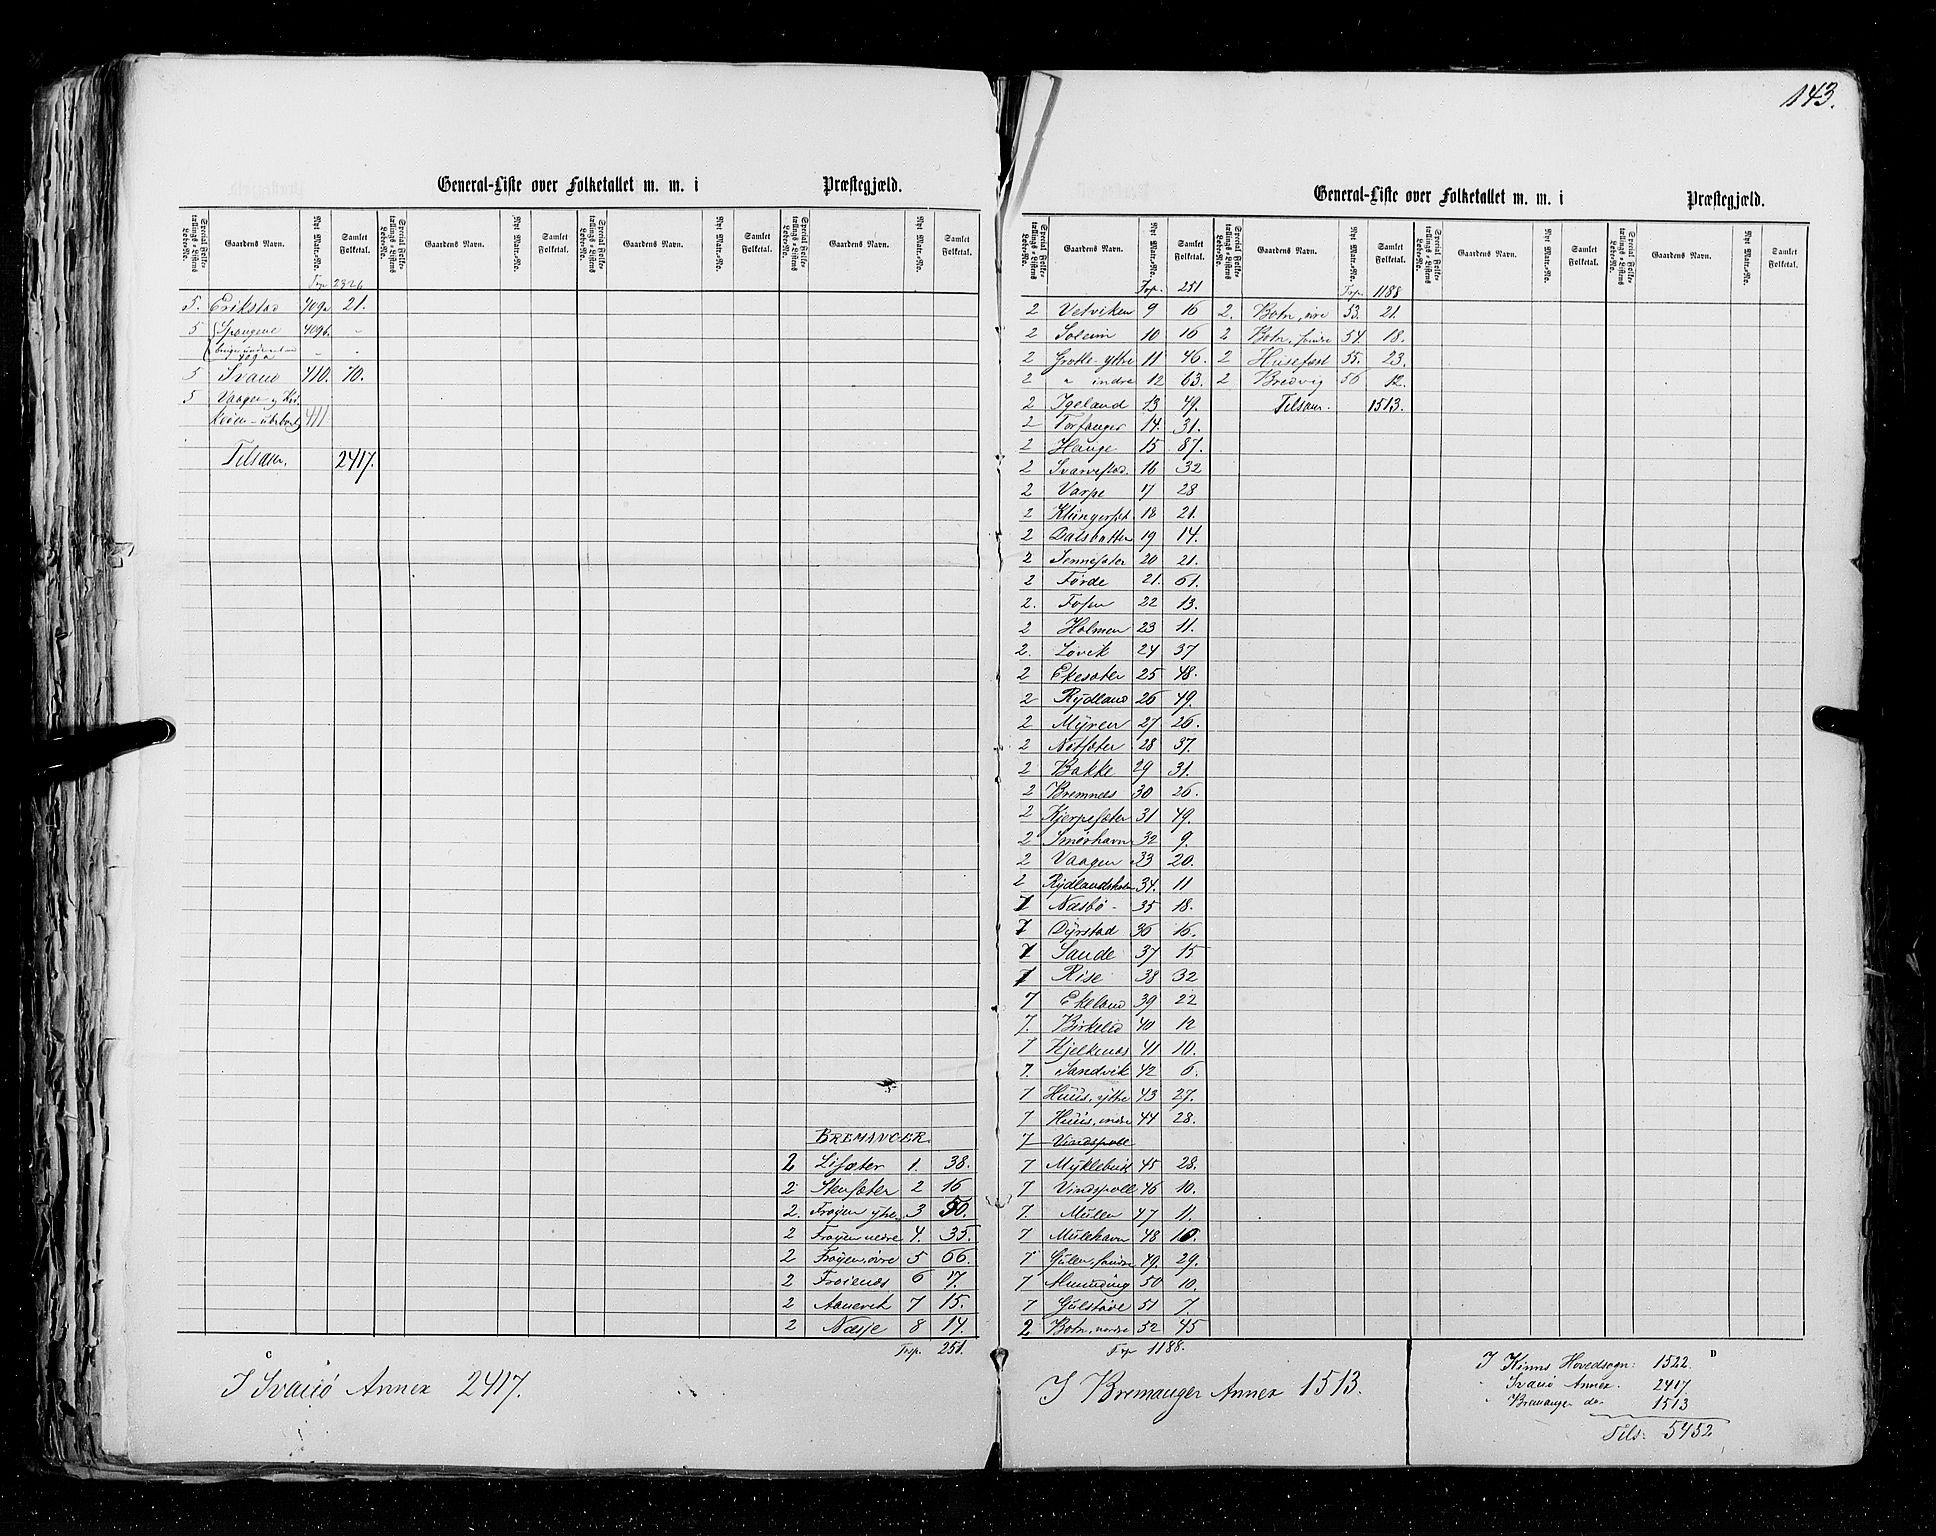 143.
General-Liste over Folketallet m. m. i Præstegjæld.
Special Folketællings-Listens Løbe-No. Gaardens Navn. Nyt Matr.-No. Samlet Folketal. Special Folketællings-Listens Løbe-No. Gaardens Navn. Nyt Matr.-No. Samlet Folketal. Special Folketællings-Listens Løbe-No. Gaardens Navn. Nyt Matr.-No. Samlet Folketal. Special Folketællings-Listens Løbe-No. Gaardens Navn. Nyt Matr.-No. Samlet Folketal.
Trp. 2326
5. Erikstad 409a 21.
5 409b -
5 Svanø 410. 70.
5 Vaagen
411
Tilsam. 2417.
BREMANGER.
2 Lisæter 1. 38.
2 Stensæter 2 16
2. Frøyen ytre 3 50.
2 Frøyen nedre 4. 35.
2 Frøyen, øvre 5 66.
2 Frøienæs 6 7.
2 Aanevik 7 15.
2 Næsje 8 14.
Trp. 251.
C
I Svanø Annex 2417.
General-Liste over Folketallet m. m. i Præstegjæld.
Special Folketællings-Listens Løbe-No. Gaardens Navn. Nyt Matr.-No. Samlet Folketal. Special Folketællings-Listens Løbe-No. Gaardens Navn. Nyt Matr.-No. Samlet Folketal. Special Folketællings-Listens Løbe-No. Gaardens Navn. Nyt Matr.-No. Samlet Folketal. Special Folketællings-Listens Løbe-No. Gaardens Navn. Nyt Matr.-No. Samlet Folketal.
Trp. 251 Trp. 1188
2 Vetviken 9 16 2. Botn, øvre 53. 21.
2 Soleim 10 16 2 Botn, søndre 54. 18.
2 Grotle - ytre 11 46. 2 Husefæst 55. 23.
2 " indre 12 63. 2 Bredvig 56 12.
2 Igeland 13 49. Tilsam. 1513.
2 Torfanger 14. 31.
2 Hauge 15 87.
2 Svarvestad. 16 32
2 Varpe 17 28
2 Klungerset 18 21.
2 Dalsbotten 19 14.
2 Sennesæter 20 21.
2 Førde 21. 61.
2. Fosse 22 13.
2 Holmen 23 11.
2. Løvik 24 37
2 Ekesæter 25 48.
2 Rydland 26 49.
2 Myren 27 26.
2 Nøtsæter 28 37.
2 Bakke 29 31.
2 Bremnes 30 26.
2 Kjerpesæter 31 49.
2 Smørhavn 32 9.
2 Vaagen 33 20.
2 Rydlandsholm 34. 11
7 Næsbø - 35 18.
7 Dyrstad 36 16.
7 Sande 37 15
7 Rise 38 32
7 Ekeland 39 22
7. Birkelid 40 12
7 Kjelkenæs 41 10.
7. Sandvik 42 6.
7 Huus, ytre 43 27.
7 Huus, indre 44 28.
7 Vindspoll
7 Myklebust 45 28.
7 Vindspoll 46 10.
7. Mulen 47 11.
7 Mulehavn 48 10.
7 Gulen, søndre 49. 29.
7 50 10.
7 Gulstøde 51 7.
2 Botn, nordre 52 45
Trp 1188.
I Bremanger Annex 1513.
D
I Kinns Hovedsogn: 1522.
" Svanø Annex. 2417.
" Bremanger do. 1513
Tils. 5452